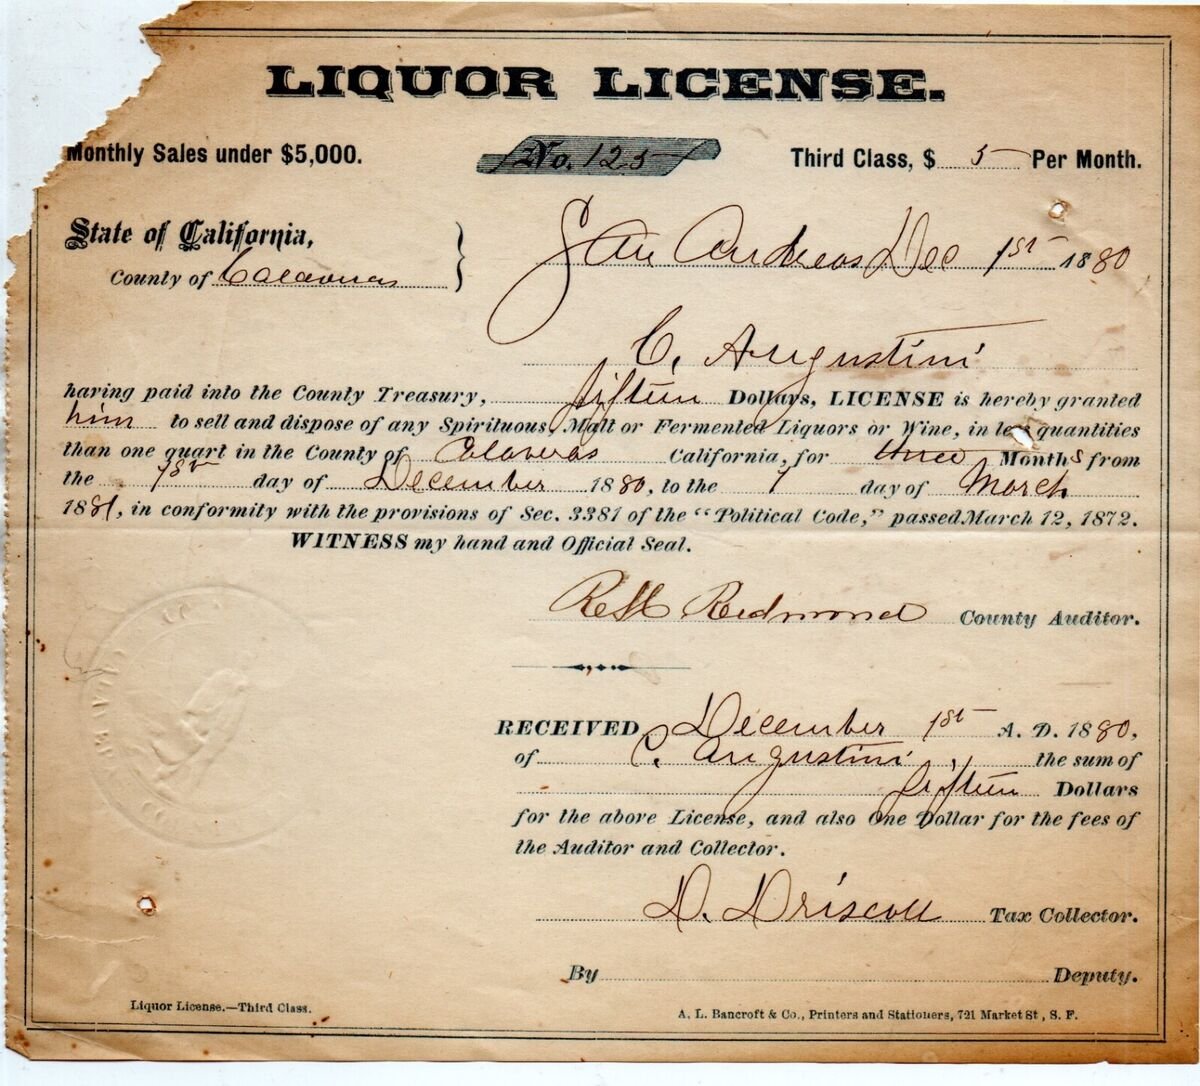 LIQUOR LICENSE.
Monthly Sales under $5,000. No. 125 Third Class, $ 5 Per Month.
State of California,
County of Calaveras
San Andreas Dec 1st 1880
C. Augustini
having paid into the County Treasury, fifteen Dollars, LICENSE is hereby granted
him to sell and dispose of any Spirituous, Malt or Fermented Liquors or Wine, in less quantities
than one quart in the County of Calaveras California, for three Months from
the 1st day of December 1880, to the 1 day of March
1881, in conformity with the provisions of Sec. 3381 of the "Political Code," passed March 12, 1872.
WITNESS my hand and Official Seal.
Redmond County Auditor.
RECEIVED December 1st A. D. 1880,
of C. Augustini, the sum of
fifteen Dollars
for the above License, and also One Dollar for the fees of
the Auditor and Collector.
D. Driscoll Tax Collector.
By Deputy.
Liquor License.—Third Class.
A. L. Bancroft & Co., Printers and Stationers, 721 Market St., S. F.